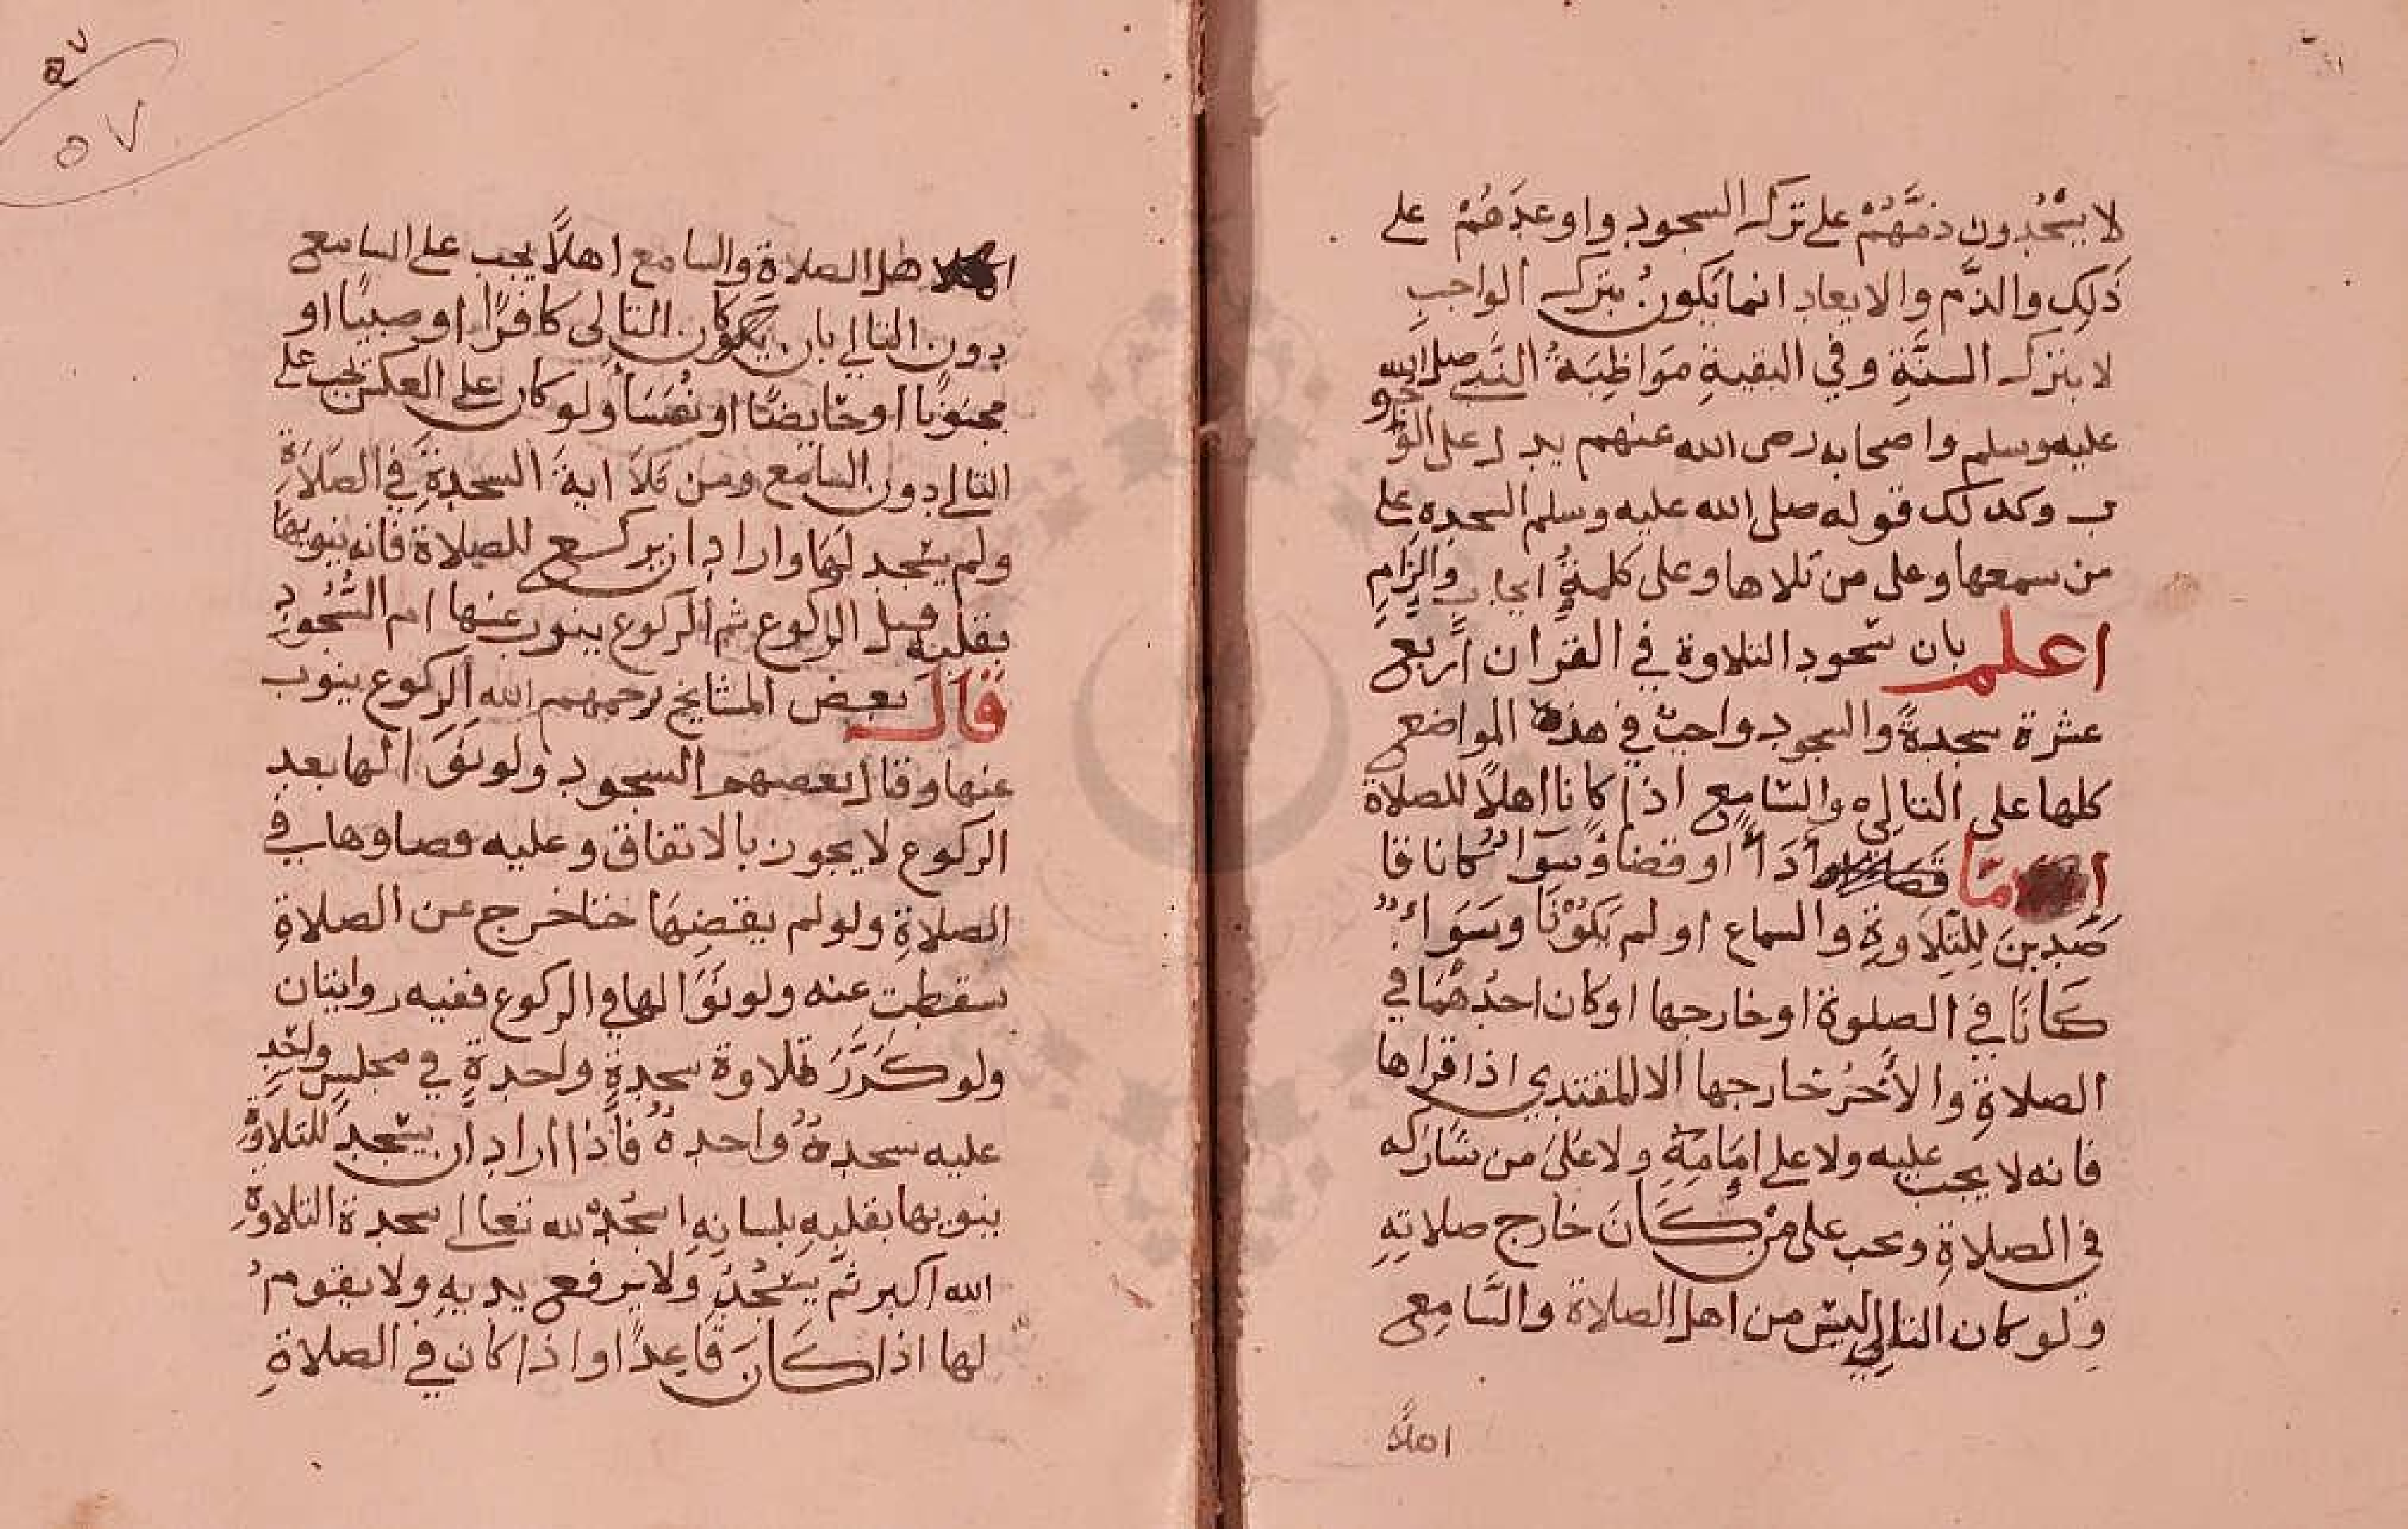 لا يسْجُدون ذمَّهُمْ على ترك السجود واوعدَهُمْ على
ذَلِك والذَّم والايعاد انما يَكونُ بترك الواجبِ
لا بترك السنَّةِ وفي البقيةِ مَوَاظبَةُ النَّبي صلى الله
عليه وسلم واصحابه رصى الله عنهم يدل على الوُجو
ب وكدلك قوله صلى الله عليه وسلم السجده على
من سمعها وعلى من تلاها وعلى كلمةُ ايجابٍ والزامِ
اعلم بان سجود التلاوة في القران اربعَ
عشرة سجدةً والسجود واجبٌ في هذه المواضع
كلها على التالي والسَّامِع اذا كانا اهلاً للصلاة
اما أدَاً او قضا وسَوَاٌ كانا قا
صَدِينَ لِلتِلاَوةِ والسماع او لم يَكُوْنَا وسَوَاءٌ
كَانَا في الصلوة او خارجها او كان احدُهُمَا في
الصلاةِ والأخرُ خارجها الا المقتدي اذا قراها
فانه لا يجب عليه ولا على اِمَامِهِ ولا عَلىَ من شَارَكه
في الصلاةِ ويجب على مَنْ كَانَ خارج صلاتِهِ
ولو كان التالي ليْسَ من اهل الصلاة والسَّامِعِ
اهلاً
هل الصلاة والسامع اهلاً يجب على السامع
دون التالي بان يكون التالى كافرًا او صبيًا او
مجنونًا او حايضًا او نُفَسَا ولو كان على العكس يجب على
التالى دون السَّامع ومن تَلاَ ايةَ السجدةِ في الصَلاَةِ
ولم يسْجد لَهَا واراد ان يركع للصلاة فانه ينويها
بقلبِهِ قبل الركوع ثم الركوع ينوب عنها ام السُّجُود
قَالَ بعض المشايخ رحمهم الله الركوع ينوب
عنها وقال بعصهم السجود ولو نَوَا لها بعد
الركوع لا يجوز بالاتفاق وعليه قصاوها في
الصلاةِ ولو لم يقضِهَا حتا خرج عن الصلاةِ
سقطت عنه ولو نَوَا لها في الركوع ففيه روايتان
ولو كَرَّرَ تلاوة سجدةٍ واحدةٍ في مجلسٍ واحِدٍ
عليه سجدةٌ واحدةٌ فاذا اراد ان يسْجدَ للتلاوةِ
ينوي بها بقلبِهِ بلسانِهِ اسْجُدُ لله تعالى سجدة التلاوةِ
الله اكبر ثمَّ يسْجُدُ ولا يرفع يديهِ ولا يقومُ
لها اذا كَانَ قَاعِدًا واذا كان في الصلاةِ
٥٧